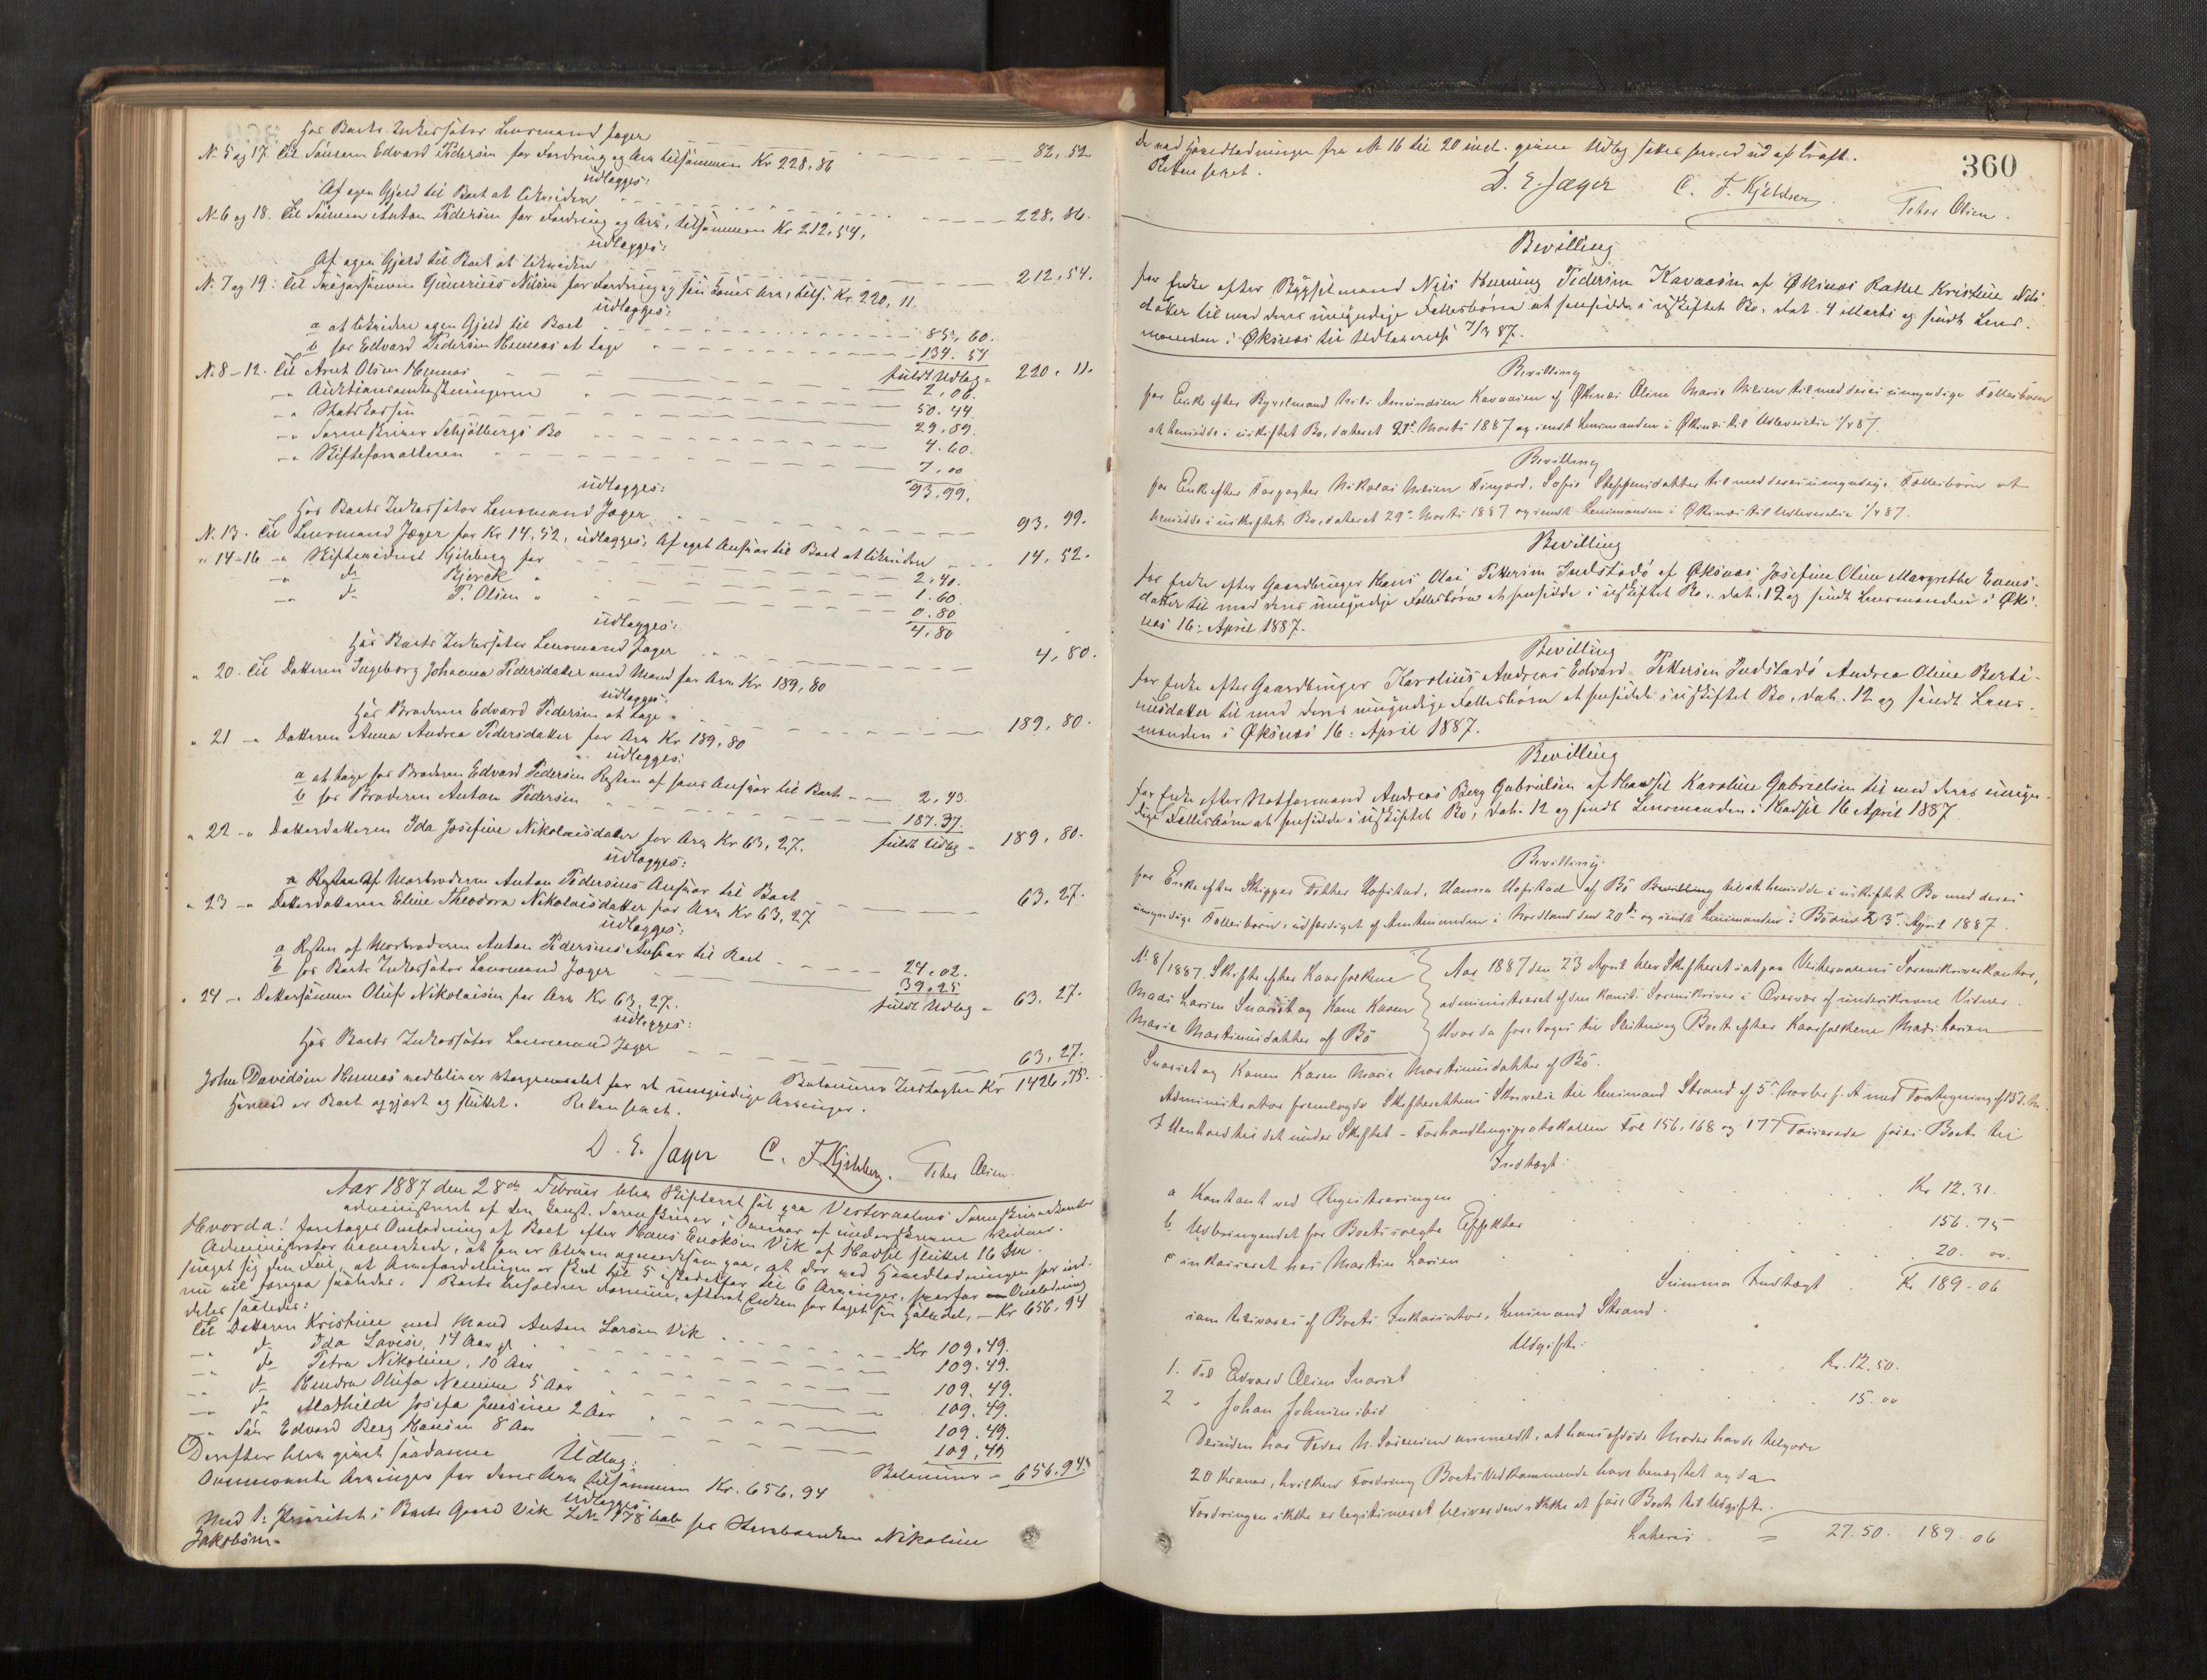 hos Boets Inkassator Lensmand Jæger - - - 82,52
No 5 og 17. Til Sönnen Edvard Pedersen for Fordring og Arv tilsammen Kr 228,86
udlægges:
Af egen Gjæld til Boet at likvidere - - - 228,86.
No 6 og 18. Til Sönnen Anton Pedersen for Fordring og Arv, tilsammen Kr 212,54,
udlægges:
Af egen Gjæld til Boet at likvidere - - - 212,54.
No 7 og 19: Til Svigersönnen Nilsen for Fordring og sin Kones Arv, tils. Kr. 220,11.
udlægges:
a at likvidere egen Gjæld til Boet - - - 85,60.
b hos Edvard Pedersen Hennes at tage - - - 134.51
fuldt Udlæg = 220.11.
No 8-12. Til Arnt Olsen Hennes - - - 2,06.
-"- Auktionsomkostningerne - - - 50.44.
-"- Statskassen - - - 29,89.
-"- Sorenskriver Schjølbergs Bo - - - 4.60.
-"- Skifteforvalteren - - - 7,00
93,99.
udlægges:
Hos Boets Inkassator Lensmand Jæger - - - 93.99.
No 13. Til Lensmand Jæger for Kr 14,52, udlægges: Af eget Ansvar til Boet at likvidere - - - 14,52.
" 14-16 -"- Skiftevidnet Kjelberg for - - - 2,40.
-"- do Bjerck " - - - 1.60.
-"- do P. Olsen " - - - 0.80
4,80
udlægges:
Hos Boets Inkassator Lensmand Jæger - - - 4,80.
" 20. Til Datteren Ingeborg Johanna Pedersdatter med Mand for Arv Kr 189,80
udlægges:
Hos Broderen Edvard Pedersen at tage - - - 189,80.
" 21 -"- Datteren Anna Andrea Pedersdatter for Arv Kr 189,80
udlægges:
a at tage hos Broderen Edvard Pedersen Resten af hans Ansvar til Boet - - 2,43.
b hos Broderen Anton Pedersen - - - 187.37.
fuldt Udlæg = 189,80.
" 22 -"- Datterdatteren Ida Josefine Nikolaisdatter for Arv Kr 63,27.
udlægges:
a Resten Af Morbroderen Anton Pedersens Ansvar til Boet - - - 63,27.
" 23 -"- Datterdatteren Eline Theodora Nikolaisdatter for Arv Kr 63,27
udlægges:
a Resten af Morbroderen Anton Pedersens Ansvar til Boet - - - 24,02.
b hos Boets Inkassator Lensmand Jæger - - - 39,25
fuldt Udlæg = 63.27.
" 24 -"- Dattersönnen Oluf Nikolaisen for Arv Kr 63,27.
udlægges:
Hos Boets Inkassator Lensmand Jæger - - - 63,27.
Balancerer Indtægten Kr 1426,75.
John Davidsen Hennes vedbliver Værgemaalet for de umyndige Arvinger.
Hermed er Boet opgjort og sluttet. Retten hævet.
D. E. Jæger C. F. Kjelberg. Peter Olsen.
Aar 1887 den 28de Februar blev Skifteret sat paa Vesteraalens Sorenskriverkontor
administreret af den konst. Sorenskriver i Overvær af underskrevne Vidner.
Hvorda: foretages Omlodning af Boet efter Hans Enoksen Vik af Hadsel sluttet 16 .
Administrator bemærkede, at han er bleven opmærksom paa, at der ved Hovedlodningen har ind-
sneget sig den Feil, at Arvefordelingen er skeet til 5 istedetfor til 6 Arvinger, hvorfor Omlodning
nu vil foregaa saaledes: Boets beholdne Formue, efterat Enken har taget sin Hálvdel, - Kr 656,94
deles saaledes:
Til Datteren Kristine med Mand Anton Larsen Vik - - - Kr 109,49.
-"- do Ida Lovise, 14 Aar gl. - - - 109.49.
-"- do Petra Nikoline, 10 Aar - - - 109.49.
-"- do Hendra Olufa 5 Aar - - - 109.49.
-"- do Mathilde Josefa Jensine 2 Aar - - - 109.49.
-"- Sön Edvard Berg Hansen 8 Aar - - - 109,49
Balancerer = 656,94.
Derefter blev gjort saadanne Udlæg:
Ovennævnte Arvinger for deres Arv tilsammen Kr. 656,94
udlægges:
Med 1: Prioritet i Boets Gaard Vik hos Sterbenken Nikoline
Jakobsen.
360
De ved Hovedlodningen fra No 16 til 20 incl. gjorte Udlæg sættes herved ud af Kraft.
Retten hævet.
D. E. Jæger C. F. Kjelberg. Peter Olsen.
Bevilling
for Enke efter Bygselmand Nils Henning Pedersen Kavaasen af Øksnes Rakel Kristine Nils-
datter til med deres umyndige Fællesbørn at hensidde i uskiftet Bo, dat. 4 Marts og sendt Lens-
manden i Øksnes til Udleverelse 7/3 87.
Bevilling
for Enke efter Bygselmand Nils Amundsen Kavaasen af Øksnes Oline Marie Nilsen til med deres umyndige Fællesbørn
at hensidde i uskiftet Bo, dateret 21de Marts 1887 og sendt Lensmanden i Øksnes til Udleverelse 1/4 87.
Bevilling
for Enke efter Nikolai Nilsen Tinjord, Sofie Steffensdatter til med deres umyndige Fællesbørn at
hensidde i uskiftet Bo, dateret 29de Marts 1887 og sendt Lensmanden i Øksnes til Udleverelse 1/4 87.
Bevilling
for Enke efter Gaardbruger Hans Olai Pettersen Indstadø af Øksnes Josefine Oline Margrethe Enins-
datter til med deres umyndige Fællesbørn at hensidde i uskiftet Bo, dat. 12 og sendt Lensmanden i Øks-
nes 16: April 1887.
Bevilling
for Enke efter Gaardbruger Karolius Andreas Edvard Pettersen Indstadø Andrea Oline Berti-
nusdatter til med deres umyndige Fællesbørn at hensidde i uskiftet Bo, dat. 12 og sendt Lens-
manden i Øksnes 16: April 1887.
Bevilling
for Enke efter Notformand Andreas Berg Gabrielsen af Hadsel Karoline Gabrielsen til med deres umyn-
dige Fællesbørn at hensidde i uskiftet Bo, dat. 12 og sendt Lensmanden i Hadsel 16 April 1887.
Bevilling
for Enke efter Skipper Petter Hofstad, Hanna Hofstad af Bö Bevilling til at hensidde i uskiftet Bo med deres
umyndige Fællesbørn, udfærdiget af Amtmanden i Nordland den 20de og sendt Lensmanden i Bö den 23de April 1887.
No 8/1887. Skifte efter Kaarfolkene
Mads Larsen Snarset og Kone Karen
Marie Martinusdatter af Bö
Aar 1887 den 23 April blev Skifteret sat paa Vesteraalens Sorenskriverkontor,
administreret af den konst. Sorenskriver i Overvær af underskrevne Vidner.
Hvorda foretages til Slutning Boet efter Kaarfolkene Mads Larsen
Snarset og Konen Karen Marie Martinusdatter af Bö.
Administrator fremlagde Skifterettens Skrivelse til Lensmand Strand af 5te Novbr f. A med Paategning af 15 d. M.
I Henhold til det under Skiftet - Forhandlingsprotokollen Fol 156, 168 og 177 Passerede föres Boet til
Indtægt:
a Kontant ved Registreringen Kr. 12,31.
b Udbringendet for Boets solgte Effekter 156.75
c inkasseret hos Martin Larsen 20. 00.
Summa Indtægt Kr 189-06
som tilsvares af Boets Inkassator, Lensmand Strand.
Udgift:
1. Til Edvard Olsen Snarset Kr. 12.50.
2 " Johan Johnsen ibid 15.00
Desuden har Peder N. Sörensen anmeldt, at hans afdöde Moder havde tilgode
20 Kroner, hvilken Fordring Boets Vedkommende have benægtet og da
Fordringen ikke er legitimeret bliver den ikke at före Boet til Udgift.
Lateris = 27.50. 189-06